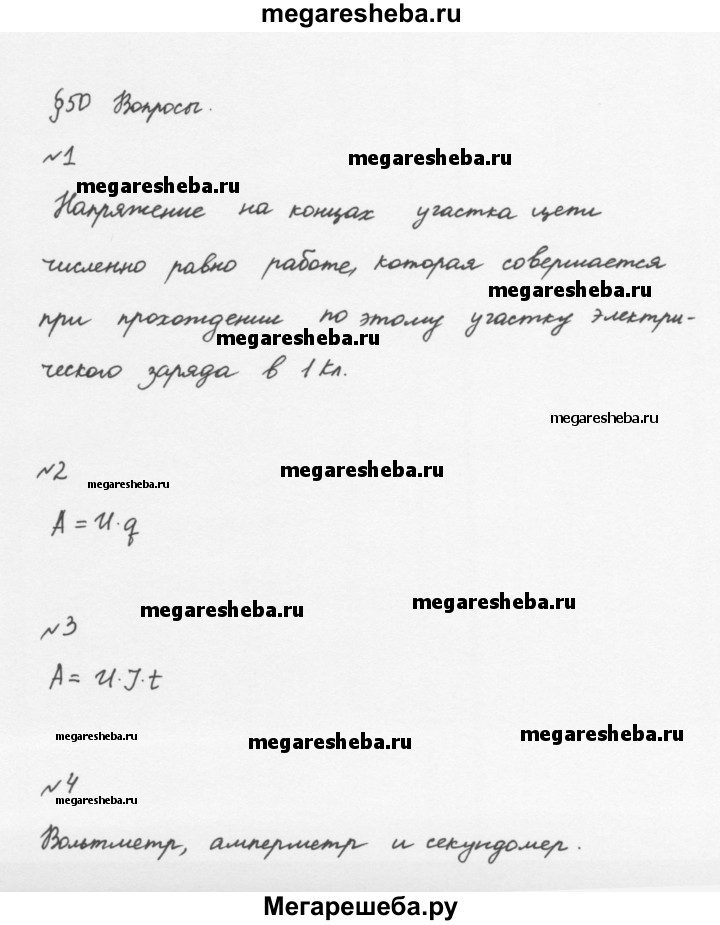 megaresheba.ru
§50 Вопросы.
№1
megaresheba.ru
megaresheba.ru
Напряжение на концах участка цепи
численно равно работе, которая совершается
megaresheba.ru
при прохождении по этому участку электри-
megaresheba.ru
ческого заряда в 1 Кл.
megaresheba.ru
№2
megaresheba.ru
megaresheba.ru
A = U·q
megaresheba.ru
megaresheba.ru
№3
A = U·I·t
megaresheba.ru
megaresheba.ru
megaresheba.ru
№4
megaresheba.ru
Вольтметр, амперметр и секундомер.
Мегарешеба.ру